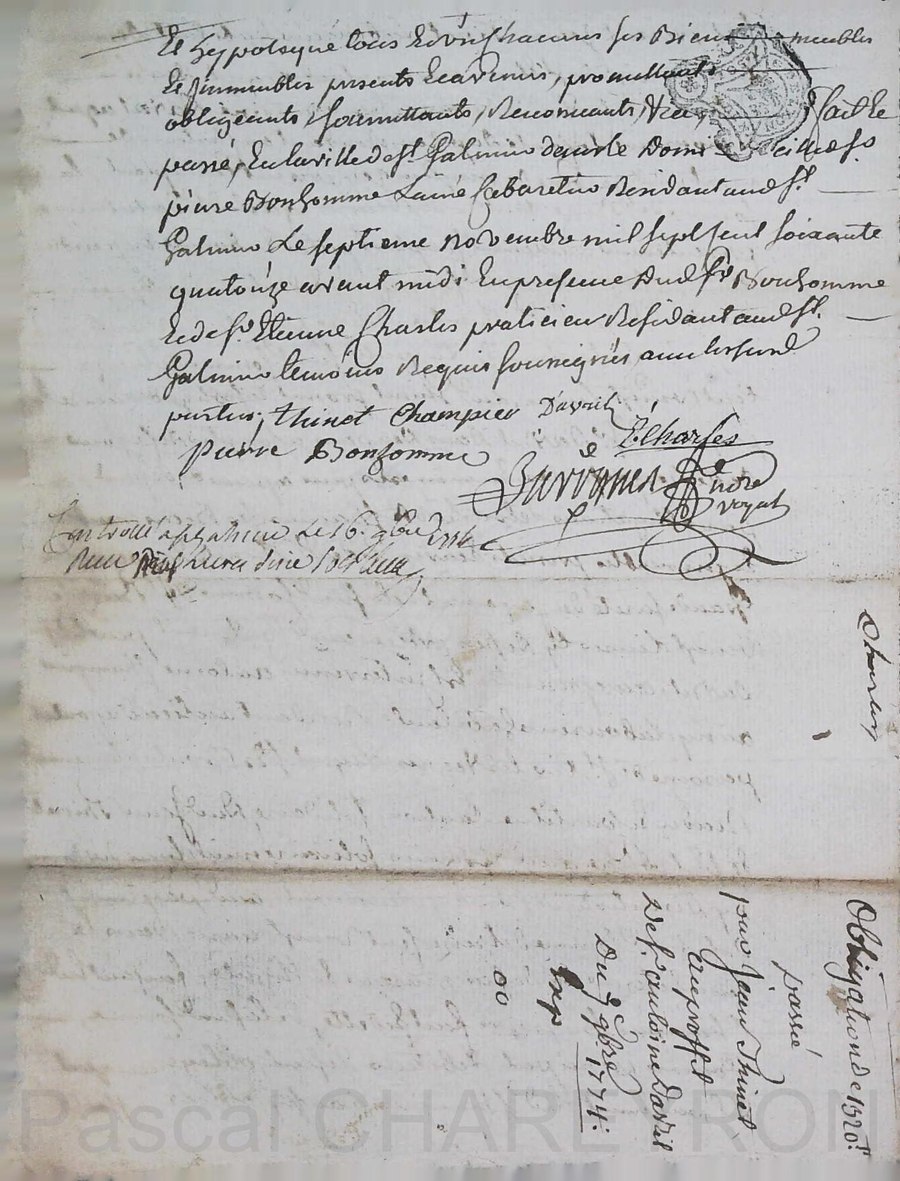 Et hypotequé tous Et un chacuns ses Biens meubles
Et jmmeubles presents Et avenirs, promettants
obligeants, soumettants, Renonceants, &ca, fait Et
passé, En la ville de st. Galmier dans le Domicile de sr.
pierre Bonhomme Lainé Cabaretier Residant aud. st.
Galmier Le septieme novembre mil sept sent soixante
quatorze avant midi En presence Dud. sr. Bonhomme
Et de sr. Etienne Charles praticien Residant aud. st.
Galmier temoins Requis soussignés avec les
parties, thinet Champier Davril
E. Charles
pierre Bonhomme
notre
royal
Controllé a st galmier Le 16. 9bre 1774
neuf Livres
Charles
Obligation de 1520 lt
passée
par Jean Thinet
au proffit
De sr. antoine Davril
Du 7 9bre 1774:
Exp
00
Pascal CHARETRON